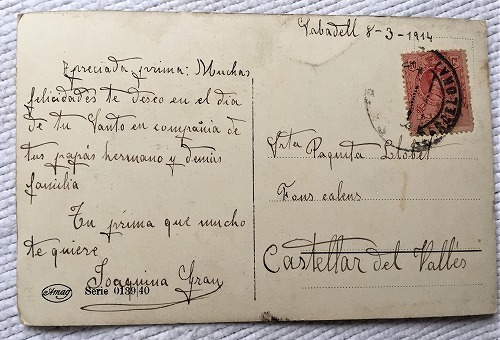 Sabadell 8-3-1914
Apreciada prima: Muchas
felicidades te deseo en el dia
de tu Santo en compañia de
tus papás hermano y demás
familia
Tu prima que mucho
te quiere
Joaquina Gran
Amag
Série 0139/40
Srta Paquita Llobet
Fons calens
Castellar del Vallés